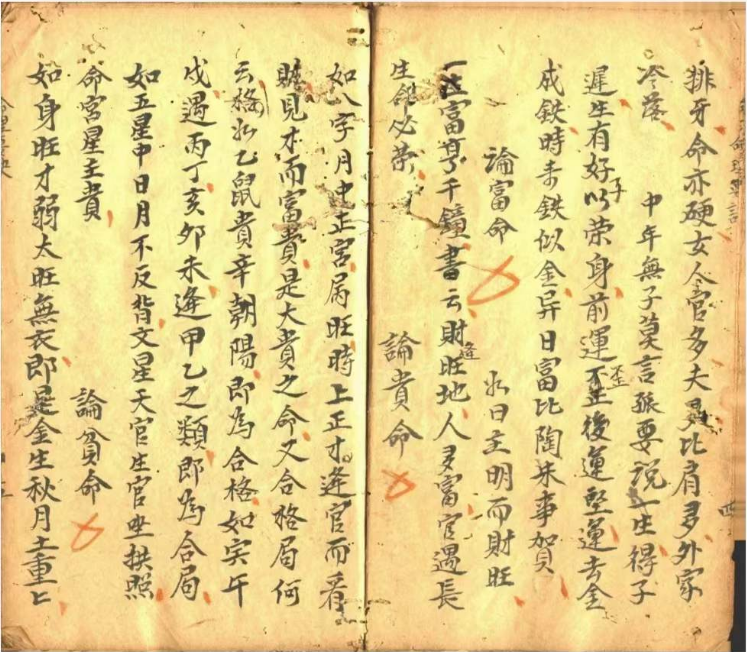 排牙命亦硬女人官多夫是比肩多外家
冷落　中年無子莫言孤要説一生得子
遲生有好子以榮身前運歪後運堅運去金
成鉄時來鉄似金异日富比陶朱事賀
論富命　如日主明而財旺
一生富享千鐘書云財逢旺地人多富官遇長
生命必榮　論貴命
如八字月中正官属旺時上正才逢官而看
財見才而富貴是大貴之命又合格局何
云格如乙鼠貴辛朝陽即為合格如寅午
戌遇丙丁亥卯未逢甲乙之類即為合局
如五星中日月不反背文星天官生官坐拱照
命宮星主貴　論貧命
如身旺才弱太旺無衣即是金生秋月土重上